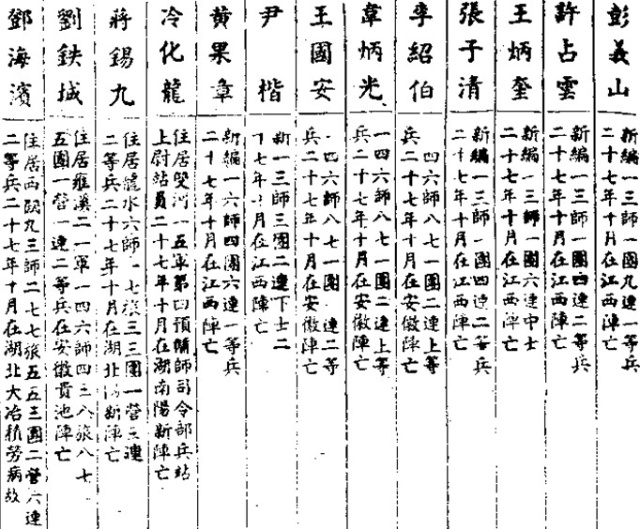 彭義山
新編一三師一團九連一等兵
二十七年十月在江西陣亡
許占雲
新編一三師一團四連二等兵
二十七年十月在江西陣亡
王炳奎
新編一三師一團六連中士
二十七年十月在江西陣亡
張子清
新編一三師一團四連二等兵
二十七年十月在江西陣亡
李紹伯
四六師八七一團二連上等
兵二十七年十月在安徽陣亡
韋炳光
一四六師八七一團二連上等
兵二十七年十月在安徽陣亡
王國安
一四六師八七一團連二等
兵二十七年十月在安徽陣亡
尹楷
新一三師三團二連下士二
十七年十月在江西陣亡
黄果章
新編一六師四團六連一等兵
二十七年十月在江西陣亡
冷化龍
住居雙河一五軍第四預備師司令部兵站
上尉站員二十七年十月在湖南陽新陣亡
蔣錫九
住居龍水六師一七旅三三團一營三連
二等兵二十七年十月在湖北陽新陣亡
劉鉄城
住居雍溪二一軍一四六師四三八旅八七
五團一營一連二等兵在安徽貴池陣亡
鄧海濱
住居西九三師二七七旅五五三團二營六連
二等兵二十七年十月在湖北大冶積勞病故